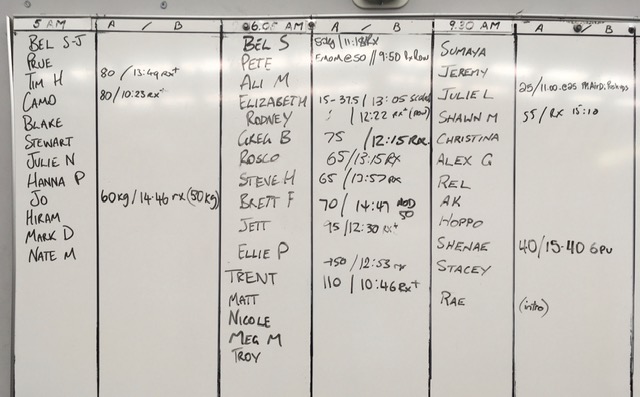 5 AM A / B 06.05 AM A / B 9.30 AM A / B
BEL S-J BEL S 11:18 RX SUMAYA
PRUE PETE EMOM @ 50 // 9:50 JEREMY
TIM H 80 / 13:49 RX+ ALI M JULIE L
CAMO 80 / 10:23 RX+ ELIZABETH 15-37.5 / 13:05 SHAWN M 55 / RX 15:10
BLAKE RODNEY / 12:22 RX+ (row) CHRISTINA
STEWART GREG B 75 / 12:15 ALEX G
JULIE N ROSCO 65 / 13:15 RX REL
HANNA P STEVE H 65 / 13:57 RX AK
JO 60kg / 14:46 RX (50kg) BRETT F 70 / 14:47 MOD 50 HOPPO
HIRAM JETT 95 / 12:30 RX+ SHENAE 40 / 15-40 6PU
MARK D ELLIE P 12:53 RX STACEY
NATE M TRENT 110 / 10:46 RX+ RAE (intro)
MATT
NICOLE
MEG M
TROY